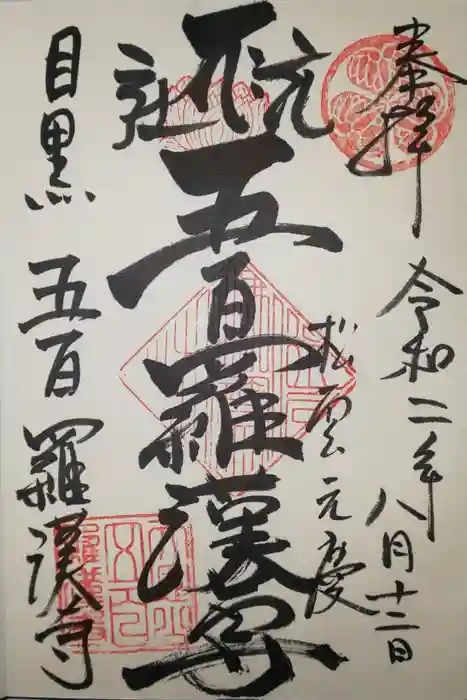 奉拝
令和二年八月十二日
松雲元慶
五百羅漢尊
目黒 五百羅漢寺